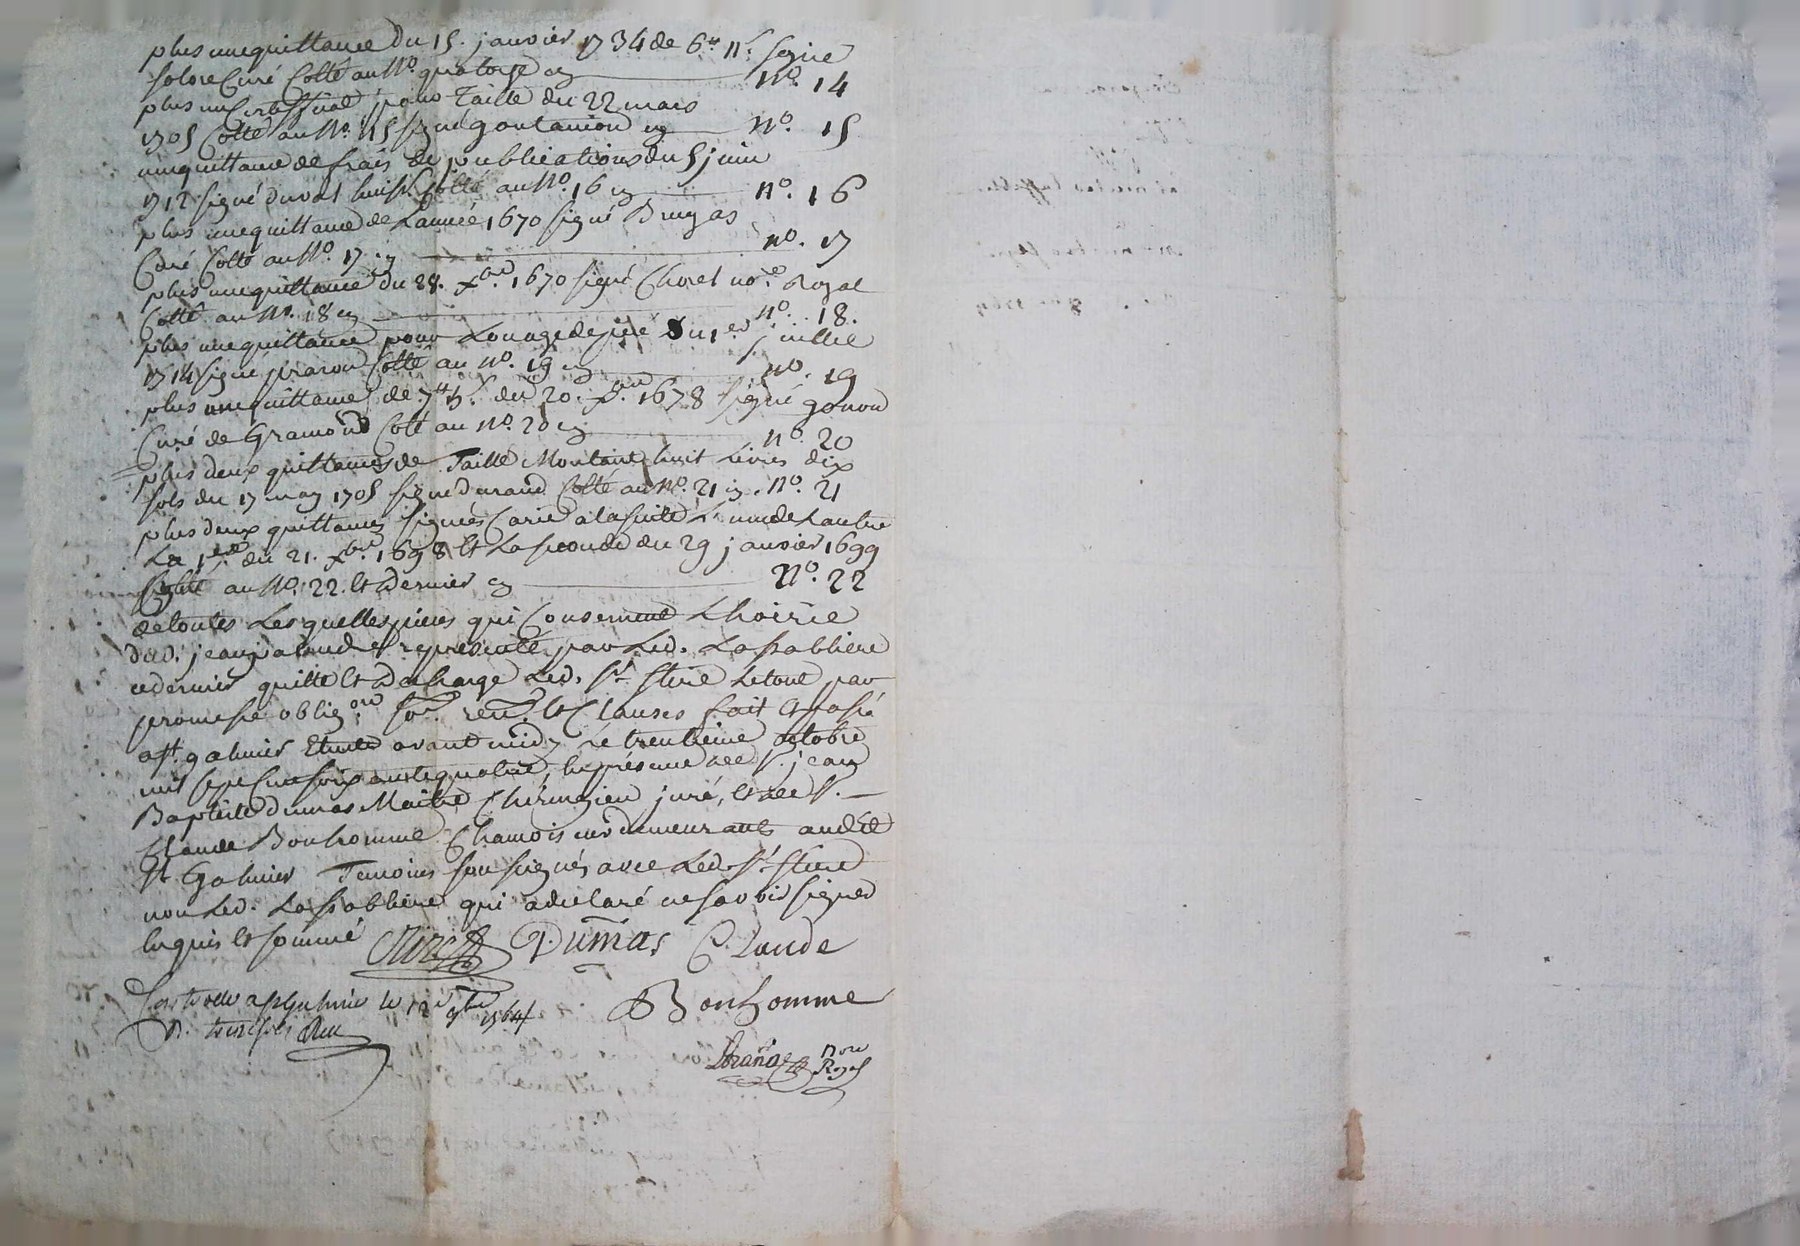 plus une quittance du 15. janvier 1734 de 6# 11s. signé
Solore Curé Cotté au No. quatorze cy No. 14
plus un Certifficat pour Taille du 22 mars
1705 Cotté au No. 15 signé goutanion cy No. 15
une quittance de frais de publications du 5 juin
1712 signé duval huisr. Cotté au No. 16 cy No. 16
plus une quittance de Lannée 1670 signé
Curé Cotté au No. 17 cy No. 17
plus une quittance du 28. xbre. 1670 signé Choret nore Royal
Cotté au No. 18 cy No. 18.
plus une quittance pour Louage de pré du 1er juillet
1714 signé piraron Cotté au No. 19 cy No. 19
plus une quittance de 7# du 20. xbre. 1678 signé gonon
Curé de Gramond Cott au No. 20 cy No. 20
plus deux quittances de Taille Montant huit Livres dix
sols du 17 may 1705 signé durand Cotté au No. 21 cy. No. 21
plus deux quittances signées Carie a la suite L'une de Lautre
La 1ere du 21. xbre 1698 et La seconde du 29 janvier 1699
Cotté au No. 22. et dernier cy No. 22
de toutes Lesquelles pieces qui Concernent Lhoirie
dud. jean representé par Led. Lasabliere
ce dernier quitte et decharge Led. Sr. Stire Le tout par
promesse obligon. son. renon. et Clauses fait et passé
a St. galmier Etude avant midy Le trentieme octobre
mil sept Cent soixante quatre, En présence de Sr. jean
Baptiste dumas Maitre Chirurgien juré, et de Sr.
Claude Bonhomme Chamoiseur demeurants audit
St Galmier Temoins soussignés avec Led. Sr. Stire
non Led. Lasabliere qui a declaré ne savoir signer
Enquis et sommé Stire Dumas Claude
Controllé a St Galmier le 12e 9bre 1764 Bonhomme
R. treize sols
nore
Royal